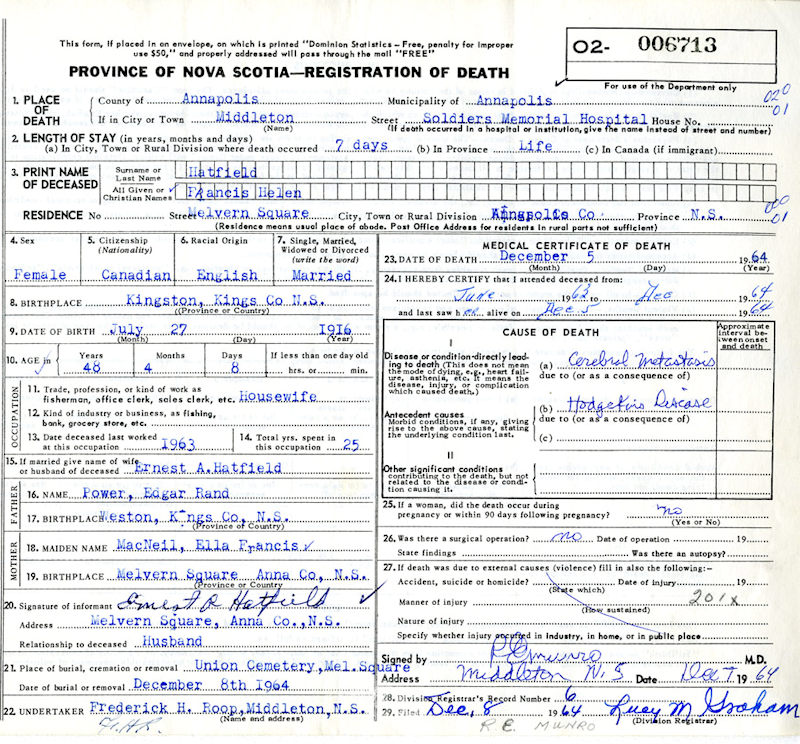 This form, if placed in an envelope, on which is printed "Dominion Statistics - Free, penalty for improper
use $50," and properly addressed will pass through the mail "FREE"
O2- 006713
PROVINCE OF NOVA SCOTIA—REGISTRATION OF DEATH
For use of the Department only
1. PLACE OF DEATH County of Annapolis Municipality of Annapolis 020
If in City or Town Middleton Street Soldiers Memorial Hospital House No. 01
(Name) (If death occurred in a hospital or institution, give the name instead of street and number)
2. LENGTH OF STAY (in years, months and days)
(a) In City, Town or Rural Division where death occurred 7 days (b) In Province Life (c) In Canada (if immigrant)
3. PRINT NAME OF DECEASED Surname or Last Name Hatfield
All Given or Christian Names Francis Helen
RESIDENCE No Street Melvern Square City, Town or Rural Division Annapolis Co. Province N.S. 01
(Residence means usual place of abode. Post Office Address for residents in rural parts not sufficient)
4. Sex Female
5. Citizenship (Nationality) Canadian
6. Racial Origin English
7. Single, Married, Widowed or Divorced (write the word) Married
8. BIRTHPLACE Kingston, Kings Co N.S.
(Province or Country)
9. DATE OF BIRTH July 27 1916
(Month) (Day) (Year)
10. AGE in Years 48 Months 4 Days 8 If less than one day old hrs. or min.
OCCUPATION
11. Trade, profession, or kind of work as
fisherman, office clerk, sales clerk, etc. Housewife
12. Kind of industry or business, as fishing,
bank, grocery store, etc.
13. Date deceased last worked at this occupation 1963
14. Total yrs. spent in this occupation 25
15. If married give name of wife
or husband of deceased Ernest A. Hatfield
FATHER
16. NAME Power, Edgar Rand
17. BIRTHPLACE Weston, Kings Co, N.S.
(Province or Country)
MOTHER
18. MAIDEN NAME MacNeil, Ella Francis
19. BIRTHPLACE Melvern Square Anna Co, N.S.
(Province or Country)
20. Signature of informant Ernest A Hatfield
Address Melvern Square, Anna Co., N.S.
Relationship to deceased Husband
21. Place of burial, cremation or removal Union Cemetery, Mel. Square
Date of burial or removal December 8th 1964
22. UNDERTAKER Frederick H. Roop, Middleton, N.S.
(Name and address)
F.H.R.
MEDICAL CERTIFICATE OF DEATH
23. DATE OF DEATH December 5 1964
(Month) (Day) (Year)
24. I HEREBY CERTIFY that I attended deceased from:
June 1963 to Dec 1964
and last saw her alive on Dec. 5 1964
CAUSE OF DEATH
Approximate interval between onset and death
I
Disease or condition directly leading to death (This does not mean the mode of dying, e.g., heart failure, asthenia, etc. It means the disease, injury, or complication which caused death.)
(a) Cerebral Metastasis
due to (or as a consequence of)
Antecedent causes
Morbid conditions, if any, giving rise to the above cause, stating the underlying condition last.
(b) Hodgkins Disease
due to (or as a consequence of)
(c)
II
Other significant conditions
contributing to the death, but not related to the disease or condition causing it.
25. If a woman, did the death occur during
pregnancy or within 90 days following pregnancy? no
(Yes or No)
26. Was there a surgical operation? no Date of operation 19
State findings Was there an autopsy?
27. If death was due to external causes (violence) fill in also the following:-
Accident, suicide or homicide? Date of injury 19
(State which)
201x
Manner of injury
(How sustained)
Nature of injury
Specify whether injury occurred in industry, in home, or in public place
Signed by R E Munro M.D.
Address Middleton N.S Date Dec 7 1964
28. Division Registrar's Record Number 6
29. Filed Dec. 8 1964 Lucy M Graham
R.E. MUNRO (Division Registrar)